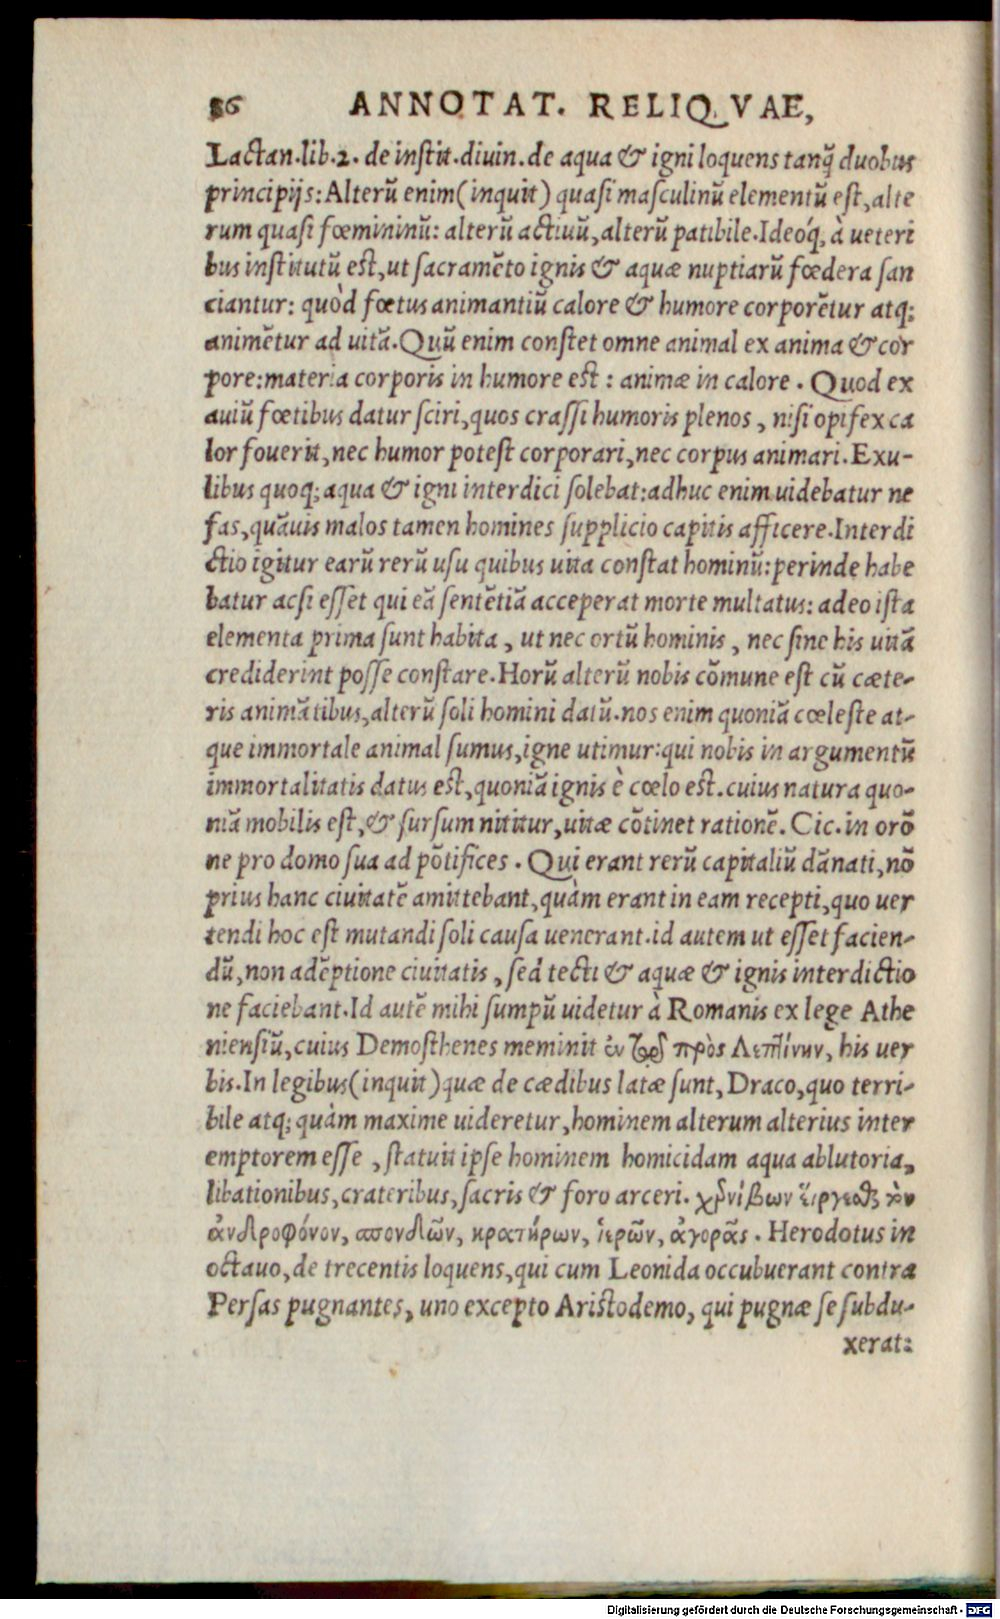 86 ANNOTAT. RELIQVAE,
Lactan.lib.2. de instit.diuin.de aqua & igni loquens tanq̃ duobus
principijs:Alterũ enim(inquit) quasi masculinũ elementũ est,alte
rum quasi fœmininũ: alterũ actiuũ,alterũ patibile.Ideóq; à ueteri
bus institutũ est,ut sacramẽto ignis & aquæ nuptiarũ fœdera san
ciantur: quòd fœtus animantiũ calore & humore corporẽtur atq;
animẽtur ad uitã.Quũ enim constet omne animal ex anima & cor
pore:materia corporis in humore est : animæ in calore . Quod ex
auiũ fœtibus datur sciri,quos crassi humoris plenos , nisi opifex ca
lor fouerit,nec humor potest corporari,nec corpus animari.Exu-
libus quoq; aqua & igni interdici solebat:adhuc enim uidebatur ne
fas,quãuis malos tamen homines supplicio capitis afficere.Interdi
ctio igitur earũ rerũ usu quibus uita constat hominũ:perinde habe
batur acsi esset qui eã sentẽtiã acceperat morte multatus: adeo ista
elementa prima sunt habita , ut nec ortũ hominis , nec sine his uitã
crediderint posse constare.Horũ alterũ nobis cõmune est cũ cæte-
ris animãtibus,alterũ soli homini datũ.nos enim quoniã cœleste at-
que immortale animal sumus,igne utimur:qui nobis in argumentũ
immortalitatis datus est,quoniã ignis è cœlo est.cuius natura quo-
niã mobilis est,& sursum nititur,uitæ cõtinet rationẽ. Cic.in orõ
ne pro domo sua ad põtifices . Qui erant rerũ capitaliũ dãnati,nõ
prius hanc ciuitatẽ amittebant,quàm erant in eam recepti,quo uer
tendi hoc est mutandi soli causa uenerant.id autem ut esset facien-
dũ,non adẽptione ciuitatis , sed tecti & aquæ & ignis interdictio
ne faciebant.Id autẽ mihi sumpũ uidetur à Romanis ex lege Athe
niensiũ,cuius Demosthenes meminit ἐν πρὸς Λεπτίνην, his uer
bis.In legibus(inquit)quæ de cædibus latæ sunt, Draco,quo terri-
bile atq; quàm maxime uideretur,hominem alterum alterius inter
emptorem esse , statuit ipse hominem homicidam aqua ablutoria,
libationibus,crateribus,sacris & foro arceri. χερνίβων εἴργεσθαι τὸν
ἀνδροφόνον, σπονδῶν, κρατήρων, ἱερῶν, ἀγορᾶς . Herodotus in
octauo,de trecentis loquens,qui cum Leonida occubuerant contra
Persas pugnantes, uno excepto Aristodemo, qui pugnæ se subdu-
xerat:
Digitalisierung gefördert durch die Deutsche Forschungsgemeinschaft - DFG